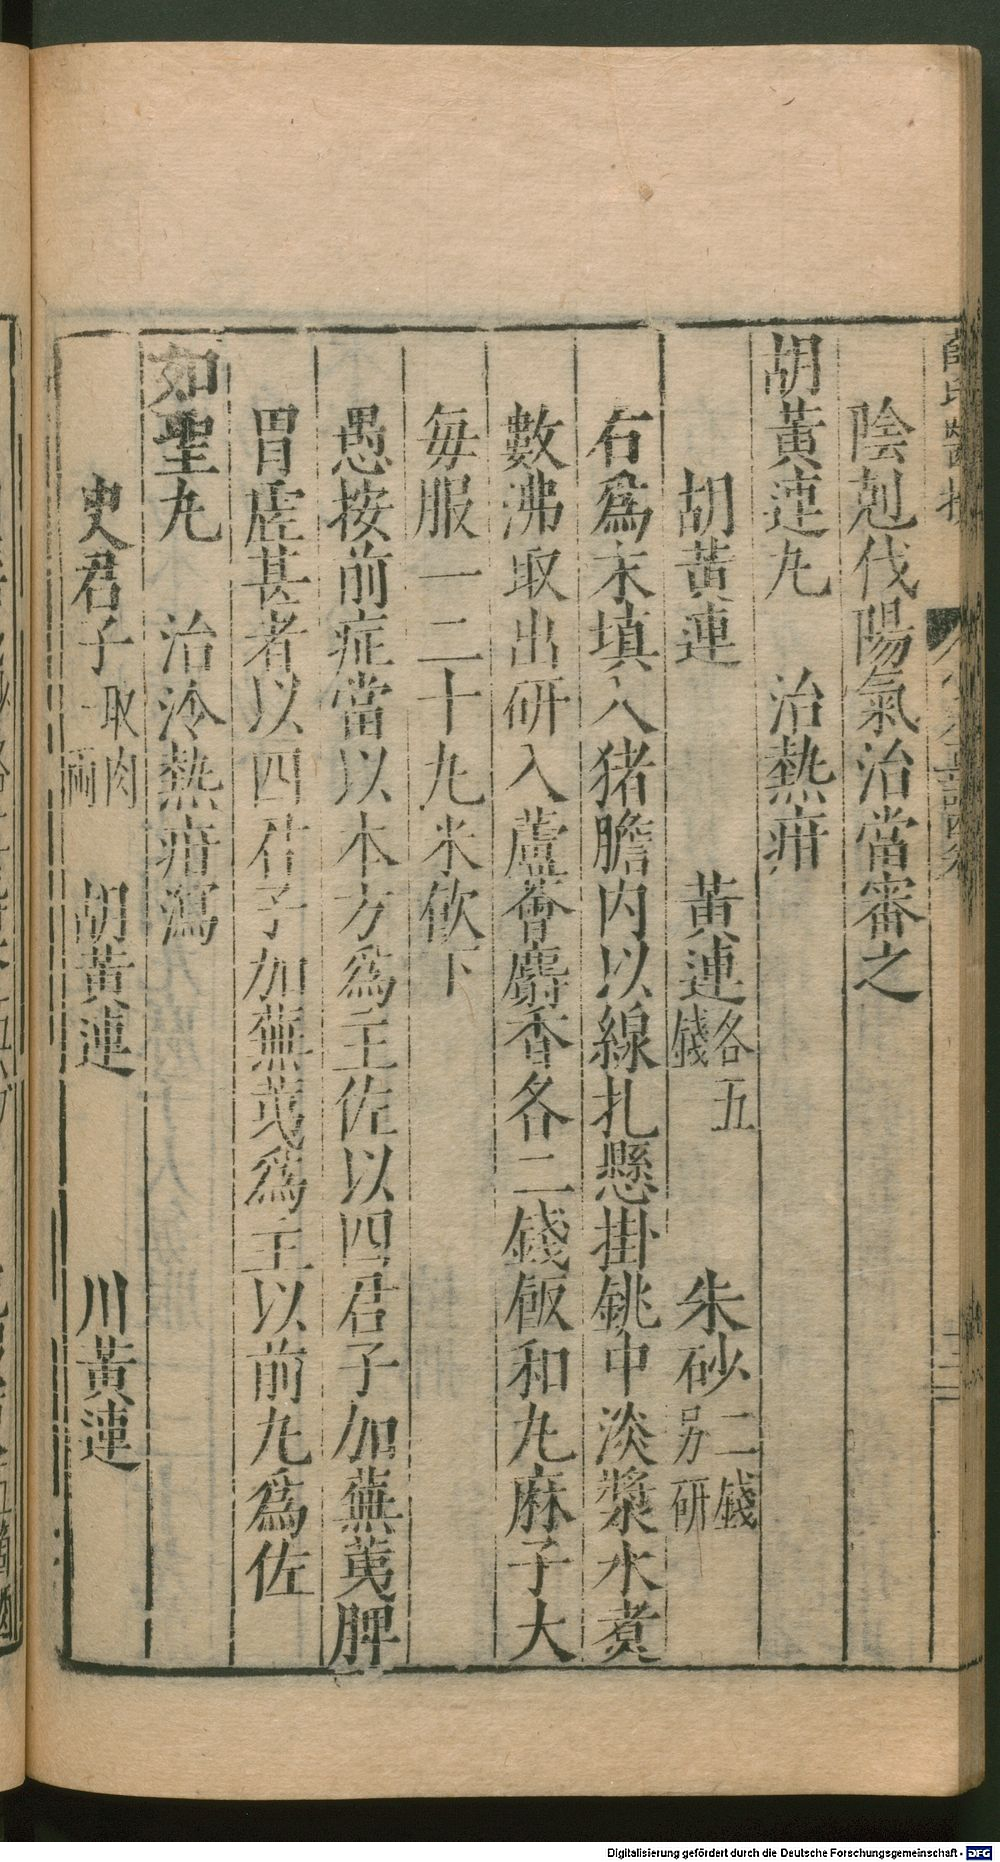 陰剋伐陽氣治當審之
胡黃連丸　治熱疳
胡黃連　黃連各五錢　朱砂二錢另研
右爲末填入猪膽内以線扎懸掛銚中淡漿水煮
數沸取出研入蘆薈麝香各二錢飯和丸麻子大
每服一二十丸米飲下
愚按前症當以本方爲主佐以四君子加蕪荑脾
胃虛甚者以四君子加蕪荑爲主以前丸爲佐
如聖丸　治冷熱疳瀉
史君子取肉一兩　胡黃連　川黃連
Digitalisierung gefördert durch die Deutsche Forschungsgemeinschaft - DFG